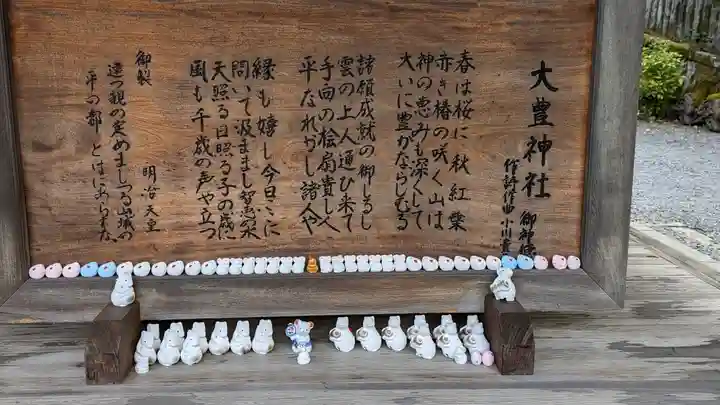 大豊神社 御神徳
作詩作曲 小川寛
春は桜に秋紅葉
赤き椿の咲く山は
神の恵みも深くして
大いに豊かならしむる
諸願成就の御しるし
雲の上人運び来て
手向の桧扇貴し久
平なれかし諸人や
縁も嬉し今日ここに
問いて汲ままし智恵の泉
天照る日照る子の歳に
国も千歳の声や立つ
御製
明治天皇
達つ観の定めましつる山城の
平の都 とはにあらまな